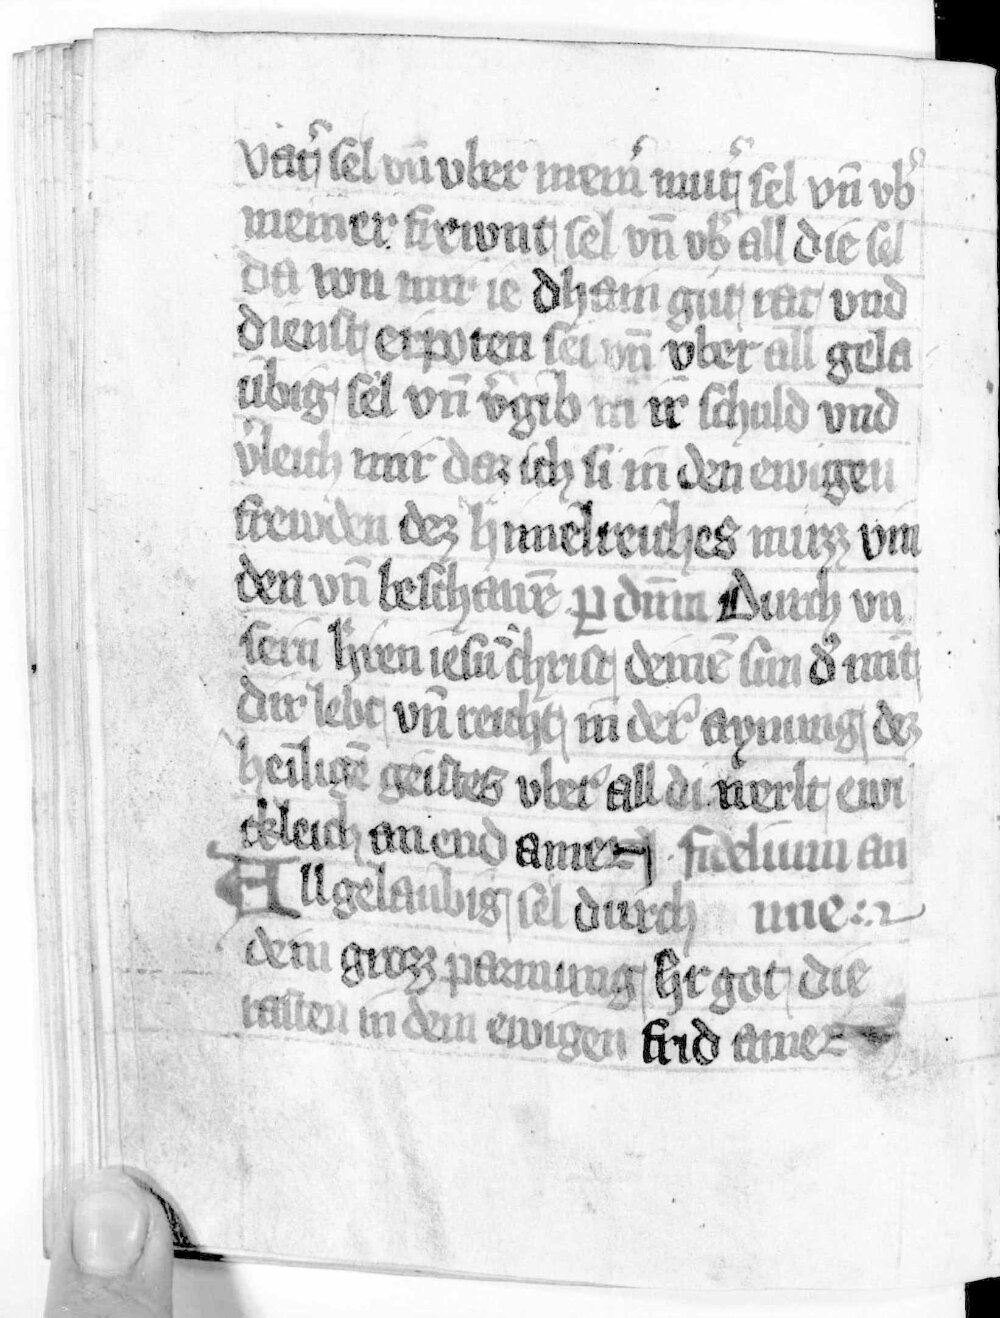 vat᷑ sel vn̄ vber meīr mut᷑ sel vn̄ vb᷑
meiner frewnt sel vn̄ vb᷑ all die sel
da von mir ie dhain gut rat vnd
dienst erpoten sei vn̄ vber all gela
ubig sel vn̄ v᷑gib in ir schuld vnd
v᷑leich mir daz ich si in den ewigen
frewden dez himelreiches muzz vin
den vn̄ beschawē ꝑ dnm̄ Durch vn
sern h᷑ren iesū christ deinē sun d᷑ mit
dir lebt vn̄ reicht in der aynung dez
heiligē geistes vber all di werlt ewi
cleich an end amen fidelium an
All gelaubig sel durch ime
dein grozz parmung h᷑r got die
rasten in dem ewigen frid amen